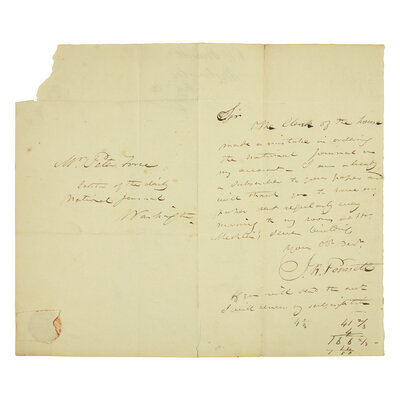 Mr. Peter Force
Editor of the daily
National Journal
Washington
Sir
The Clerk of the house
made a mistake in ordering
the national Journal on
my account. I am already
a subscriber to your paper and
will thank you to have my
paper sent regularly every
morning to my room at Mr
Your Obt Servt
J. R. Poinsett
If you will send the acct
I will renew my subscription